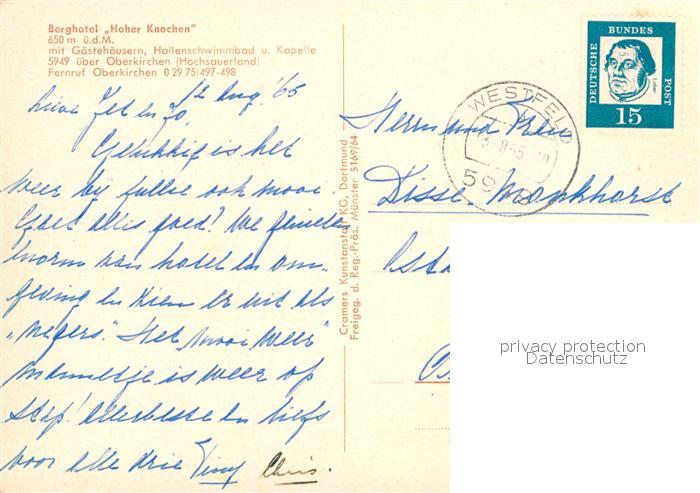 Berghotel „Hoher Knochen"
650 m ü.d.M.
mit Gästehäusern, Hallenschwimmbad u. Kapelle
5949 über Oberkirchen (Hochsauerland)
Fernruf Oberkirchen 0 29 75) 497-498
12 Aug. '65
Lieve en Jo,
Gelukkig is het
weer bij jullie ook mooi.
Gaat alles goed? We genieten
enorm van hotel en om-
geving en zien er uit als
„negers". Het „mooi weer"
mannetje is weer op
stap! Allerbeste en liefs
voor alle drie Chris.
Cramers Kunstanstalt KG, Dortmund
Freigeg. d. Reg.-Präs. Münster 5169/64
WESTFELD
DEUTSCHE BUNDESPOST
Luther
15
Herrn und Frau
Disse-Monkhorst
privacy protection
Datenschutz